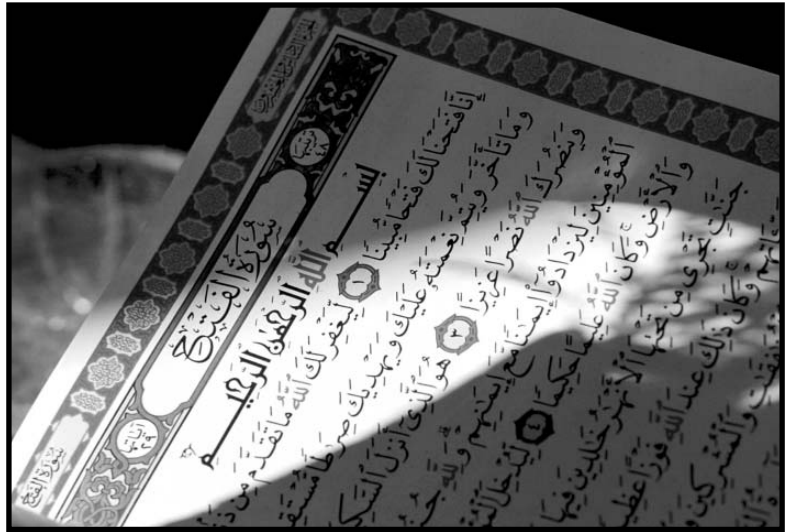 سُورَةُ الفَتْحِ
سُورَةُ الفَتْحِ
بِسْمِ ٱللَّهِ ٱلرَّحْمَٰنِ ٱلرَّحِيمِ
إِنَّا فَتَحْنَا لَكَ فَتْحًا مُّبِينًا ١ لِّيَغْفِرَ لَكَ ٱللَّهُ مَا تَقَدَّمَ مِن
وَمَا تَأَخَّرَ وَيُتِمَّ نِعْمَتَهُۥ عَلَيْكَ وَيَهْدِيَكَ صِرَٰطًا مُّسْتَقِ
وَيَنصُرَكَ ٱللَّهُ نَصْرًا عَزِيزًا ٣ هُوَ ٱلَّذِىٓ أَنزَلَ ٱلسَّكِ
ٱلْمُؤْمِنِينَ لِيَزْدَادُوٓا۟ إِيمَٰنًا مَّعَ إِيمَٰنِهِمْ وَلِلَّهِ جُنُ
وَٱلْأَرْضِ وَكَانَ ٱللَّهُ عَلِيمًا حَكِيمًا ٤ لِّيُدْخِلَ ٱلْمُؤْ
جَنَّٰتٍ تَجْرِى مِن تَحْتِهَا ٱلْأَنْهَٰرُ خَٰلِدِينَ فِيهَا
وَكَانَ ذَٰلِكَ عِندَ ٱللَّهِ فَوْزًا عَظِ
وَٱلْمُشْرِكِينَ